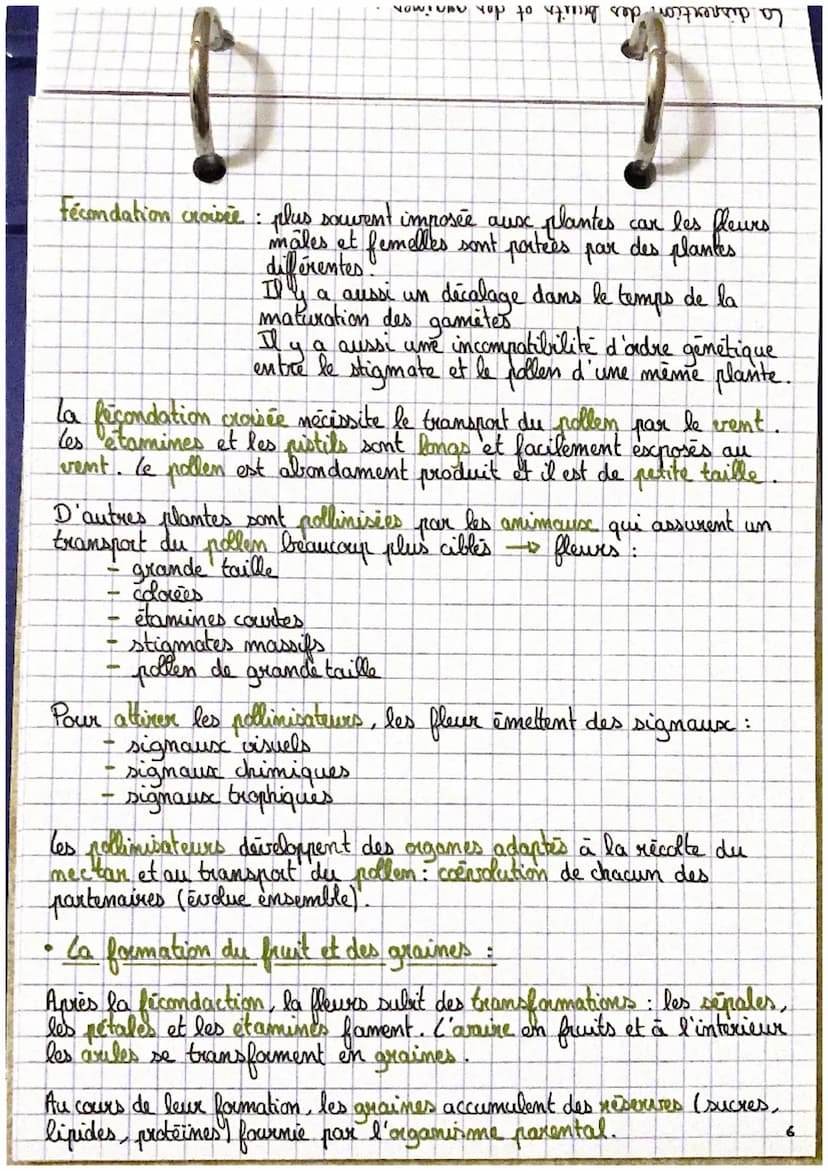 La dispertion des fruits et des graines :
Fécondation croisée : plus souvent imposée aux plantes car les fleurs
mâles et femelles sont portées par des plantes
différentes.
Il y a aussi un décalage dans le temps de la
maturation des gamètes
Il y a aussi une incompatibilité d'ordre génétique
entre le stigmate et le pollen d'une même plante.
La fécondation croisée nécissite le transport du pollen par le vent.
Les étamines et les pistils sont longs et facilement exposés au
vent. Le pollen est abondament produit et il est de petite taille.
D'autres plantes sont pollinisées par les animaux qui assurent un
transport du pollen beaucoup plus ciblés → fleurs :
- grande taille
- colorées
- étamines courtes
- stigmates massifs
- pollen de grande taille
Pour attirer les pollinisateurs, les fleur émettent des signaux :
- signaux visuels
- signaux chimiques
- signaux trophiques
Les pollinisateurs développent des organes adaptés à la récolte du
nectar et au transport du pollen : coévolution de chacun des
partenaires (évolue ensemble).
• La formation du fruit et des graines :
Après la fécondaction, la fleurs subit des transformations : les sépales,
les pétales et les étamines fanent. L'ovaire en fruits et à l'interieur
les ovules se transforment en graines.
Au cours de leur formation, les graines accumulent des réserves (sucres,
lipides, protéines) fournie par l'organisme parental.
6